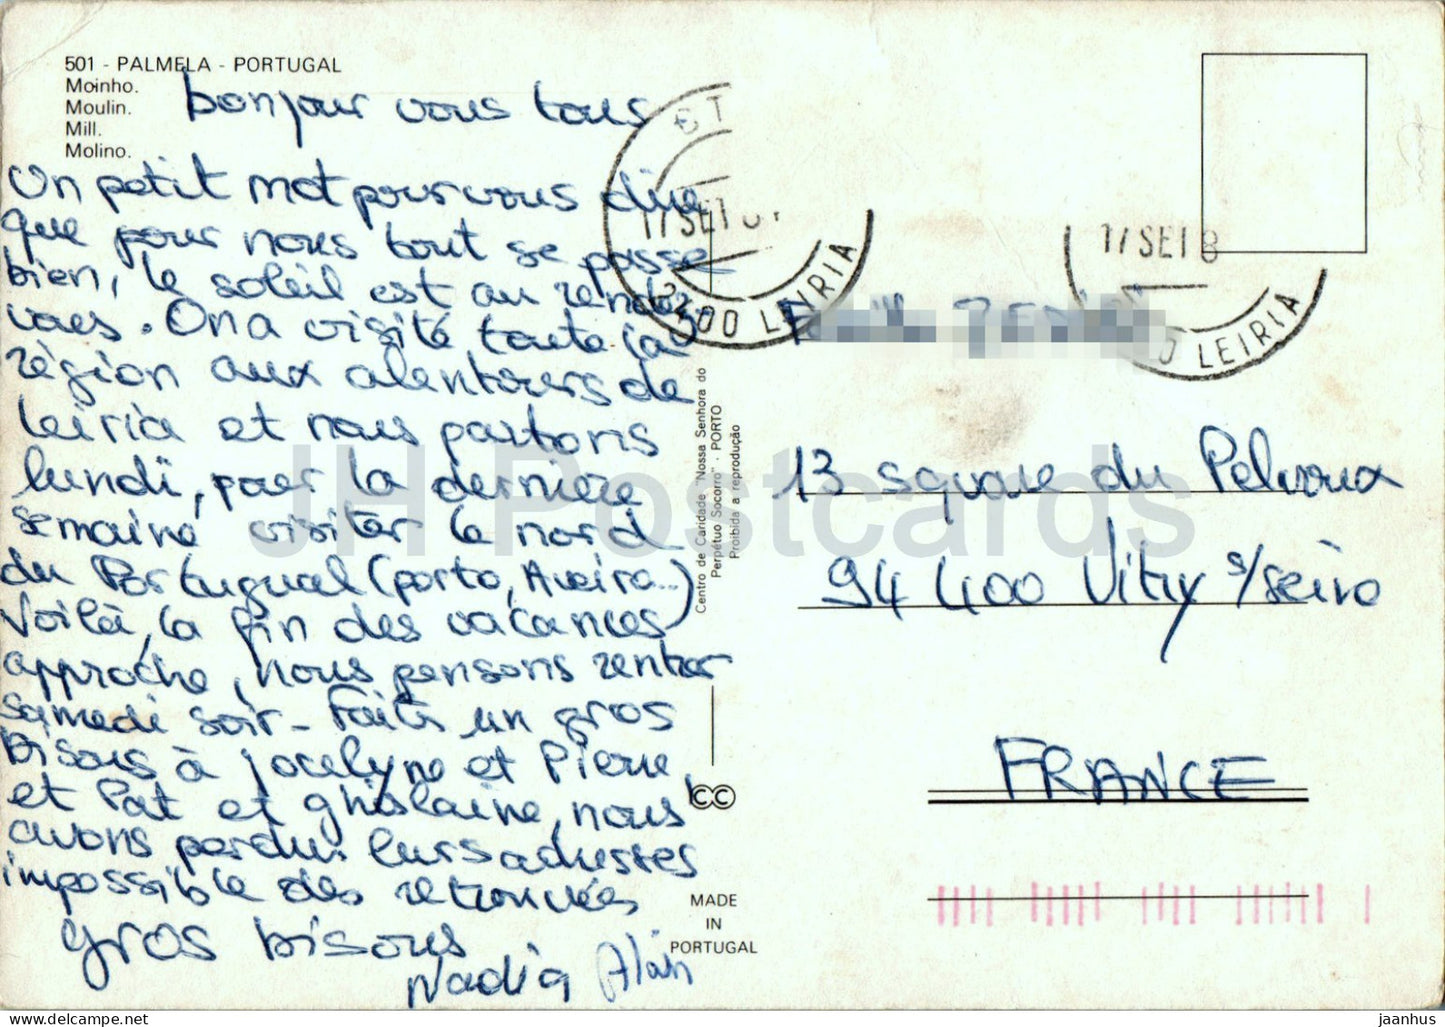 501 - PALMELA - PORTUGAL
Moinho.
Moulin.
Mill.
Molino.
bonjour vous tous
Un petit mot pour vous dire
que pour nous tout se passe
bien, le soleil est au rendez-
vous. On a visité toute la
région aux alentours de
Leiria et nous partons
lundi, pour la dernière
semaine visiter le nord
du Portugual (porto, Aveiro...)
Voilà, la fin des vacances
approche, nous pensons rentrer
samedi soir - Faits un gros
bisous à jocelyne et Pierre
et Pat et ghislaine, nous
avons perdu leurs adresses
impossible des retrouvées
gros bisous
Nadia Alain
CT
17 SET 8
2400 LEIRIA
17 SET 8
LEIRIA
13 square du Pelvoux
94 400 Vitry s/seine
FRANCE
Centro de Caridade "Nossa Senhora do
Perpétuo Socorro" - PORTO
Proibida a reprodução
CC
MADE
IN
PORTUGAL
JH Postcards
jaanhus ©www.delcampe.net